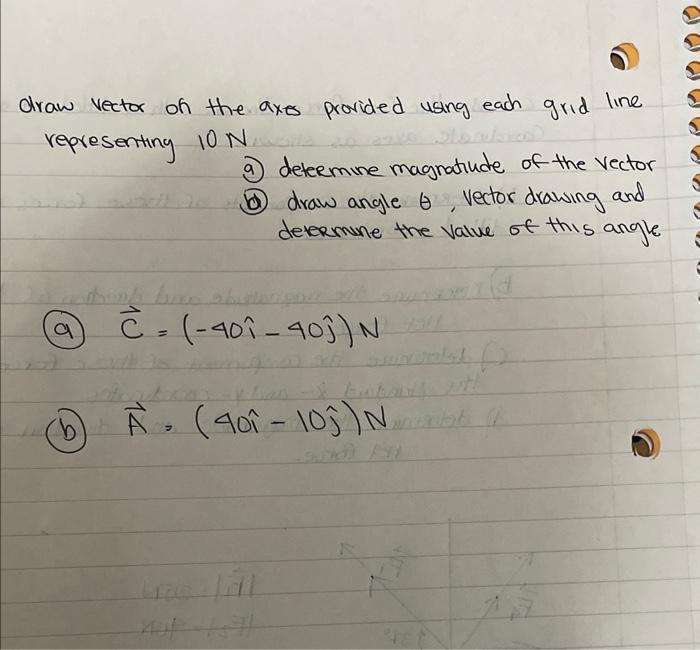 draw vector on the axes provided using each grid line
representing 10 N
ⓐ deteermine magnatiude of the vector
ⓑ draw angle θ, vector drawing and
determine the value of this angle
ⓐ C⃗ = (-40î - 40ĵ) N
ⓑ A⃗ = (40î - 10ĵ) N